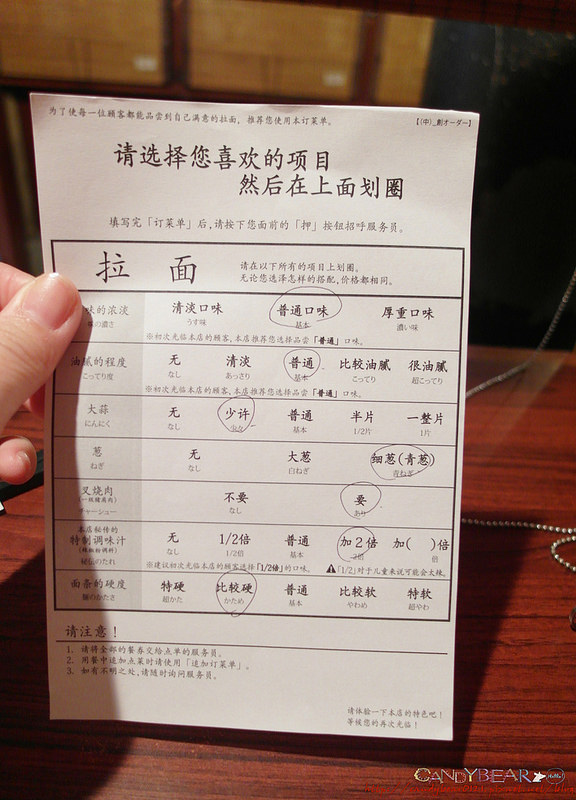 为了使每一位顾客都能品尝到自己满意的拉面，推荐您使用本订菜单。
【(中)_創オーダー】
请选择您喜欢的项目
然后在上面划圈
填写完「订菜单」后,请按下您面前的「押」按钮招呼服务员。
拉 面
请在以下所有的项目上划圈。
无论您选泽怎样的搭配,价格都相同。
味的浓淡 清淡口味 普通口味 厚重口味
の濃さ うす味 基本 濃い味
※初次光临本店的顾客、本店推荐您选择品尝「普通」口味。
油腻的程度 无 清淡 普通 比较油腻 很油腻
こってり度 なし あっさり 基本 こってり 超こってり
※初次光临本店的顾客、本店推荐您选择品尝「普通」口味。
大蒜 无 少许 普通 半片 一整片
にんにく なし 少々 基本 1/2片 1片
葱 无 大葱 细葱(青葱)
ねぎ なし 白ねぎ 青ねぎ
叉烧肉 不要 要
チャーシュー なし あり
本店秘传的
特制调味汁 无 1/2倍 普通 加2倍 加( )倍
(辣椒粉调料)
秘伝のたれ なし 1/2倍 基本 2倍 倍
※建议初次光临本店的顾客选择「1/2倍」的口味。 「1/2」对于儿童来说可能会太辣。
面条的硬度 特硬 比较硬 普通 比较软 特软
麺のかたさ 超かた かため 基本 やわめ 超やわ
请注意！
1. 请将全部的餐券交给点单的服务员。
2. 用餐中追加点菜时请使用「追加订菜单」。
3. 如有不明之处,请随时询问服务员。
请体验一下本店的特色吧！
等候您的再次光临！
CANDYBEAR